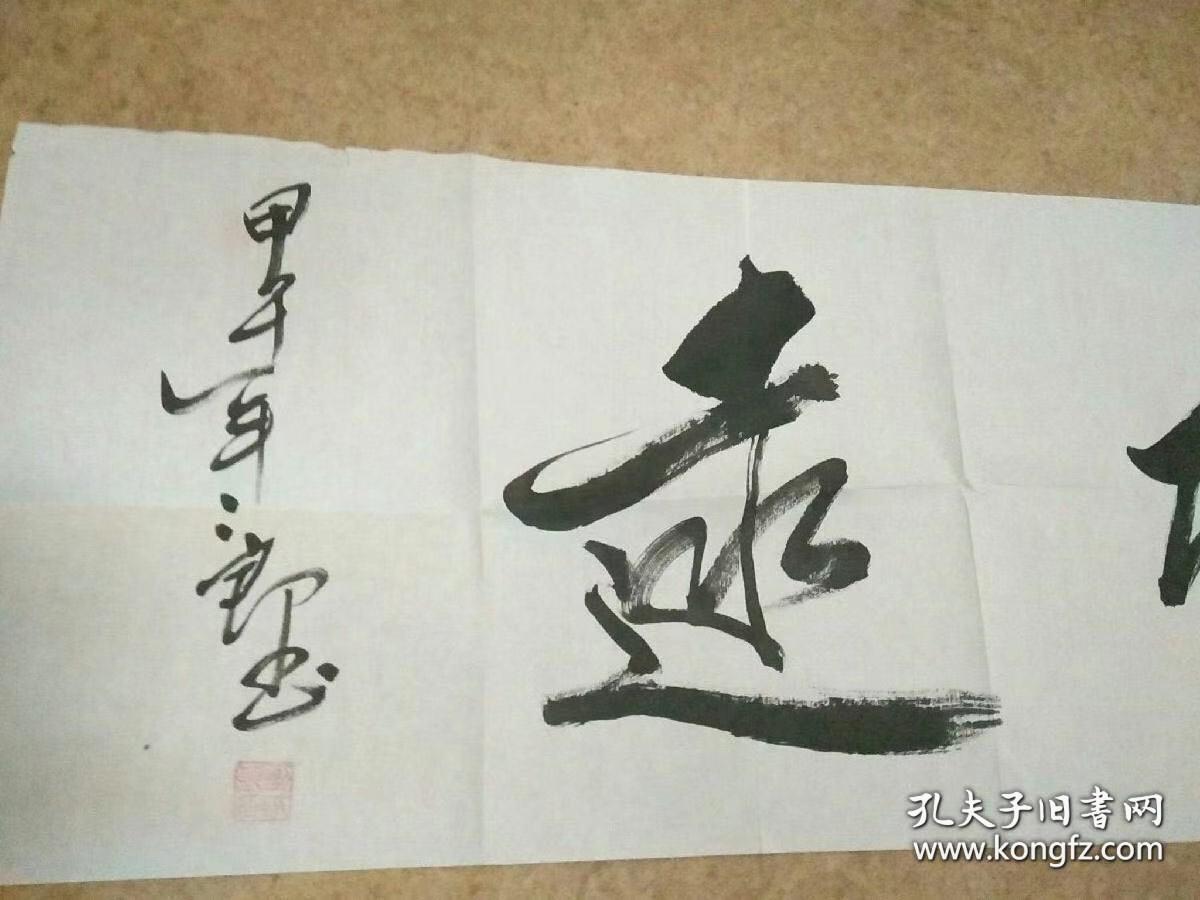 遠
甲午年 书
孔夫子旧書网
www.kongfz.com